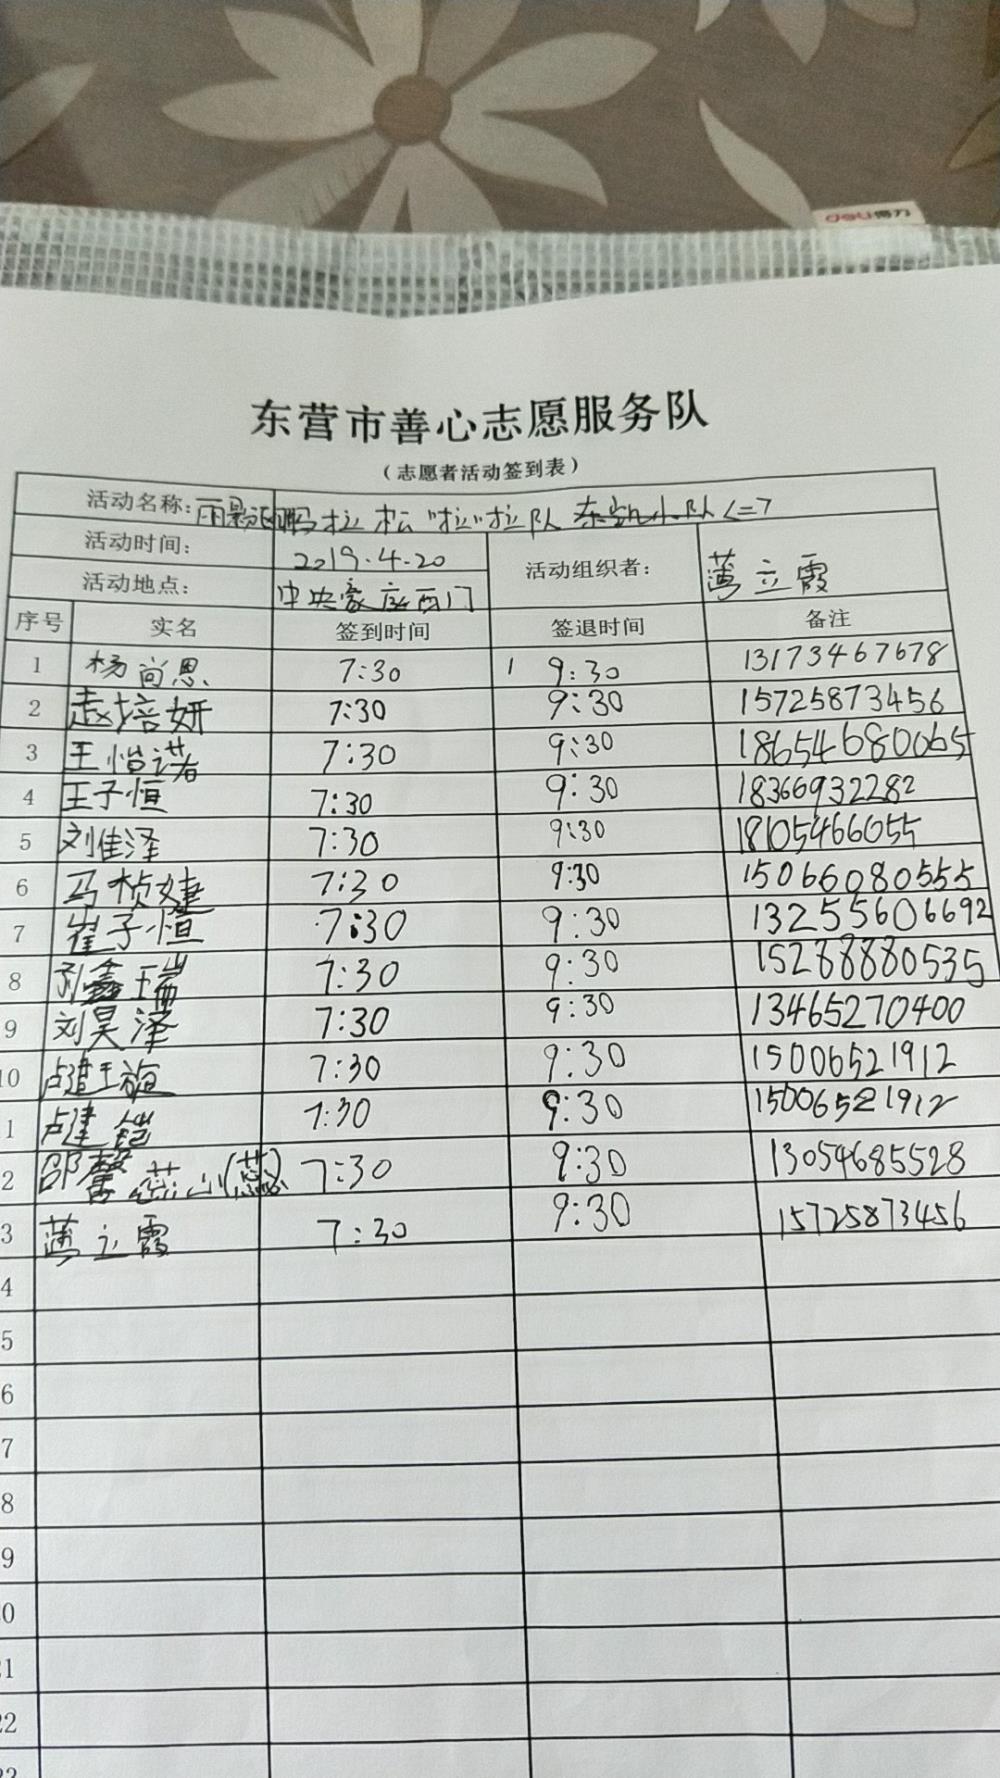 deli得力
东营市善心志愿服务队
（志愿者活动签到表）
活动名称：雨 拉松"拉"拉队 东凯小队<=7
活动时间： 2019.4.20 活动组织者： 薄立霞
活动地点： 中央豪庭西门
序号 实名 签到时间 签退时间 备注
1 杨尚恩 7:30 9:30 13173467678
2 赵培妍 7:30 9:30 15725873456
3 王恺诺 7:30 9:30 18654680065
4 王子恒 7:30 9:30 18366932282
5 刘佳泽 7:30 9:30 18105466055
6 马桢婕 7:30 9:30 15066080555
7 崔子恒 7:30 9:30 13255606692
8 刘鑫瑞 7:30 9:30 15288880535
9 刘昊泽 7:30 9:30 13465270400
10 卢建璇 7:30 9:30 15006521912
1 卢建铠 7:30 9:30 15006521912
2 邵馨蕊 (蕊) 7:30 9:30 13054685528
3 薄立霞 7:30 9:30 15725873456
4
5
6
7
8
9
0
21
22
23